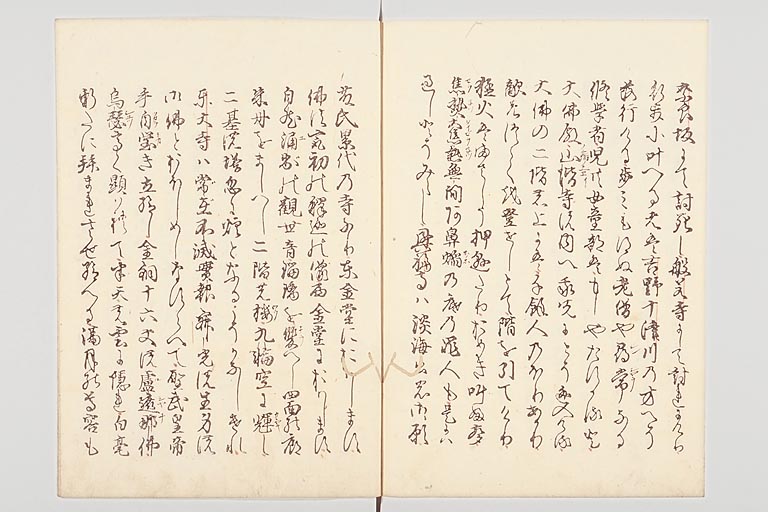 奈良坂にて討死し般若寺にて討れにけり
行歩に叶へる者は吉野十津川の方へそ
落行ける歩みもえぬ老僧や尋常なる
修学者児共女童部はもしやたすかると
大佛殿山階寺の内へ我先にとそ逃入ける
大佛の二階の上には千余人のほりあかり
敵のつゝくを登せしとて階を引てけり
猛火はまさしう押懸たりおめき叫ふ声
焦熱大焦熱無間阿鼻焔の底の罪人も是には
過しとそみえし興福寺は淡海公の御願
藤氏累代の寺なり東金堂におはします
佛法最初の釈迦の像西金堂におはします
自然涌出の観世音瑠璃を双へし四面の廊
朱丹をましへし二階の楼九輪空に輝し
二基の塔忽に煙となるこそかなしけれ
東大寺は常在不滅実報寂光の生身の
御佛とおほしめしなすらへて聖武皇帝
手自瑩き立給し金銅十六丈の盧遮那佛
烏瑟高く顕れて半天の雲に隠れ白毫
新たに拝まれさせ給へる満月の尊容も